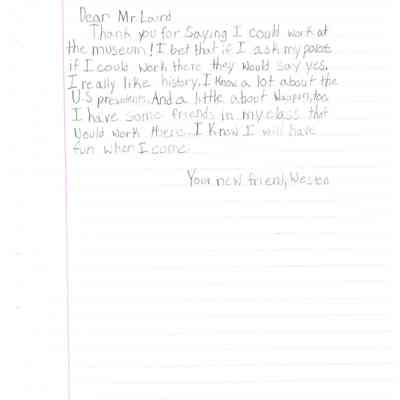 Dear Mr. Laird
Thank you for Saying I could work at
the museum! I bet that if I ask my
if I could work there they would say yes.
I really like history. I know a lot about the
U.S presidents. And a little about too.
I have some friends in my class that
Would work there. I know I will have
fun when I come.
Your new friend, Weston